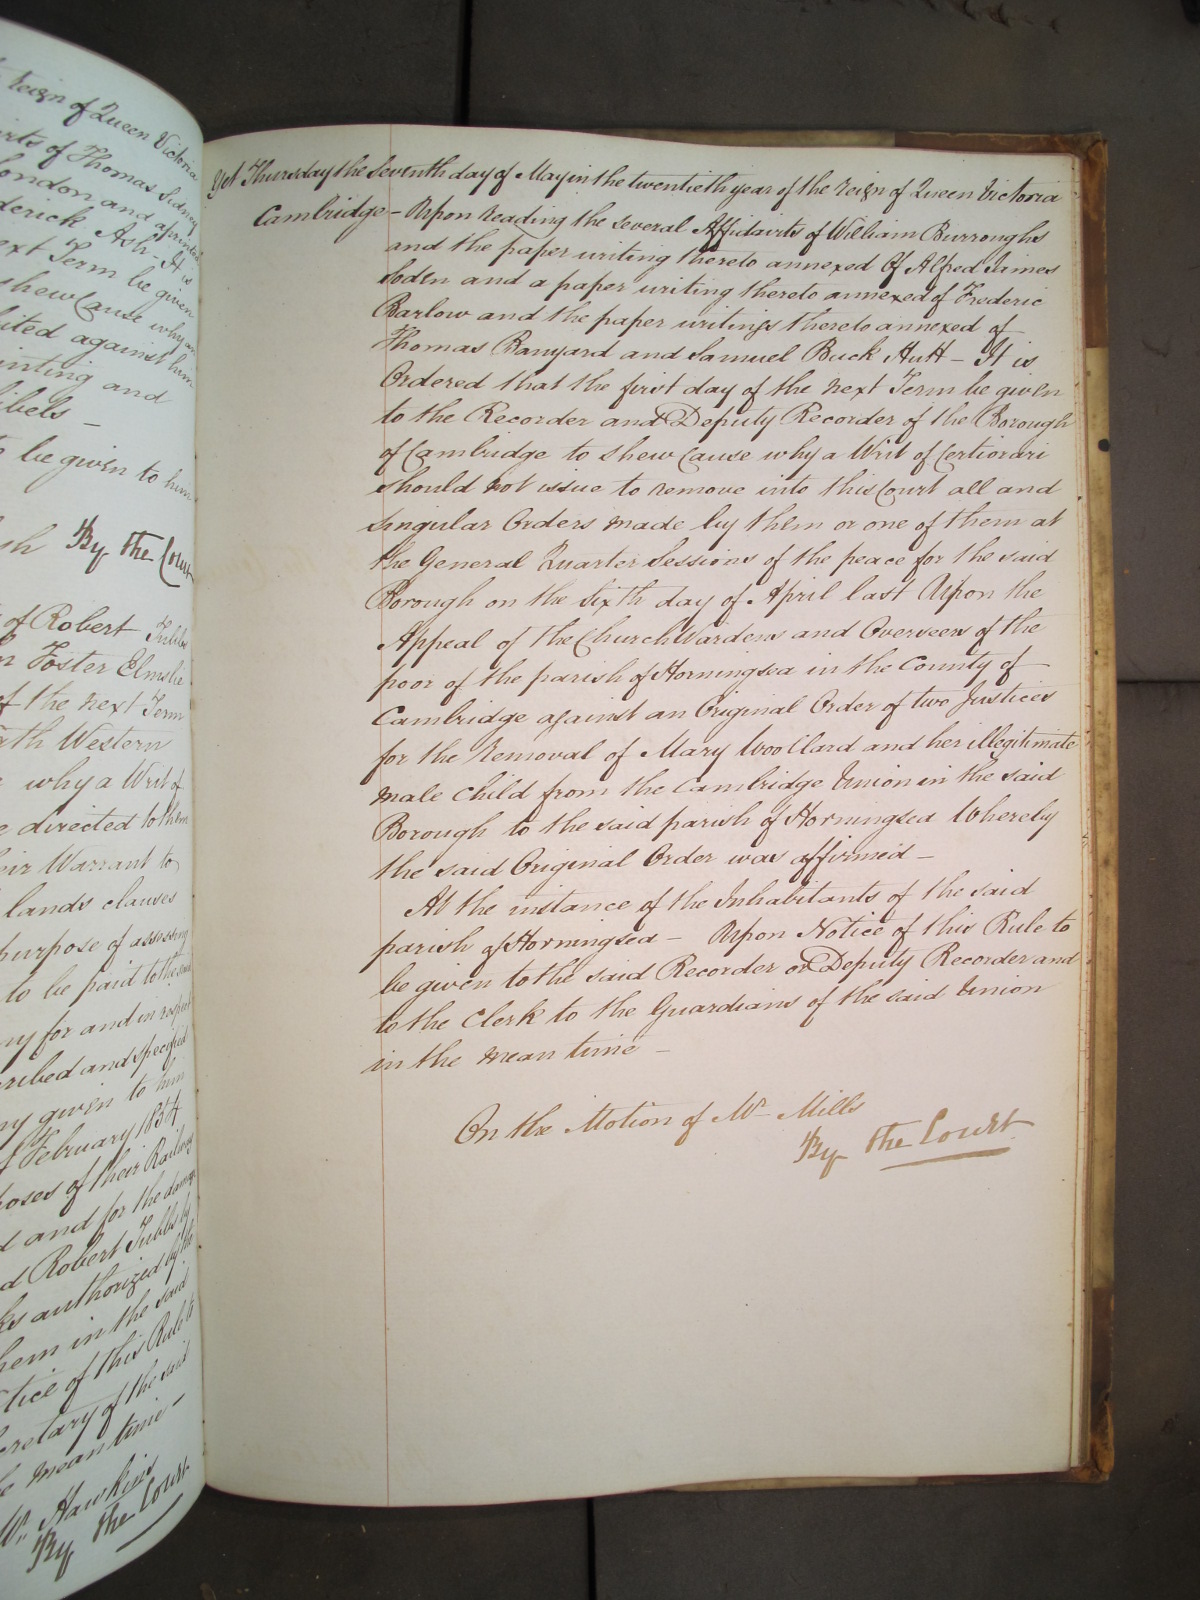 Reign of Queen Victoria
of Thomas Sidney
London and a printed
Frederick Ash - It is
next Term be given
shew Cause why an
against him
printing and
libels -
be given to him
By the Court
of Robert Tubbs
Foster Elmslie
of the next Term
Western
why a Writ of
directed to them
their Warrant to
lands clauses
purpose of assessing
to be paid to the said
for and in respect
and specified
given to him
February 1854
purposes of their Railway
and for the damage
Robert Tubbs by
authorized by the
them in the said
Notice of this Rule to
Secretary of the said
mean time -
Mr. Hawkins
By the Court
Yet Thursday the Seventh day of May in the twentieth year of the Reign of Queen Victoria
Cambridge - Upon reading the several Affidavits of William Burroughs
and the paper writing thereto annexed Of Alfred James
Soden and a paper writing thereto annexed of Frederic
Barlow and the paper writings thereto annexed of
Thomas Banyard and Samuel Buck Hutt - It is
Ordered that the first day of the next Term be given
to the Recorder and Deputy Recorder of the Borough
of Cambridge to shew Cause why a Writ of Certiorari
should not issue to remove into this Court all and
singular Orders made by them or one of them at
the General Quarter Sessions of the peace for the said
Borough on the sixth day of April last Upon the
Appeal of the Church Wardens and Overseers of the
poor of the parish of Horningsea in the County of
Cambridge against an Original Order of two Justices
for the Removal of Mary Woollard and her illegitimate
male Child from the Cambridge Union in the said
Borough to the said parish of Horningsea Whereby
the said Original Order was affirmed -
At the instance of the Inhabitants of the said
parish of Horningsea - Upon Notice of this Rule to
be given to the said Recorder or Deputy Recorder and
to the Clerk to the Guardians of the said Union
in the mean time -
On the Motion of Mr Mills
By the Court